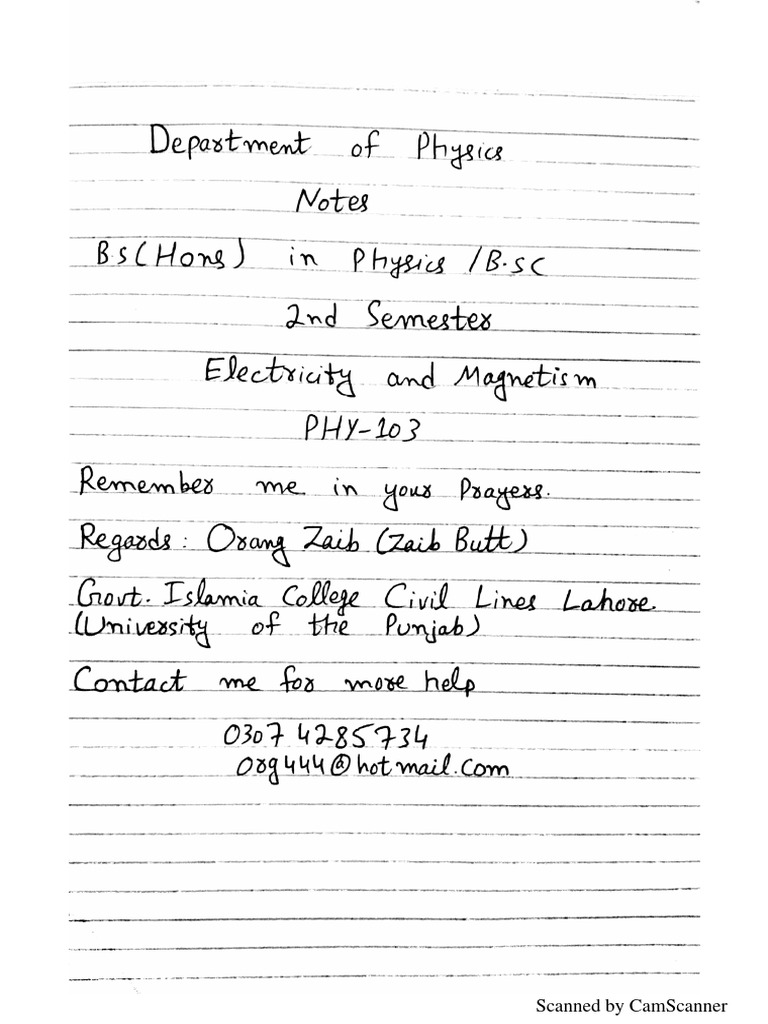 Department of Physics
Notes
B.S(Hons) in Physics /B.SC
2nd Semester
Electricity and Magnetism
PHY-103
Remember me in your Prayers.
Regards: Orang Zaib (Zaib Butt)
Govt. Islamia College Civil Lines Lahore.
(University of the Punjab)
Contact me for more help
0307 4285734
org444@hotmail.com
Scanned by CamScanner